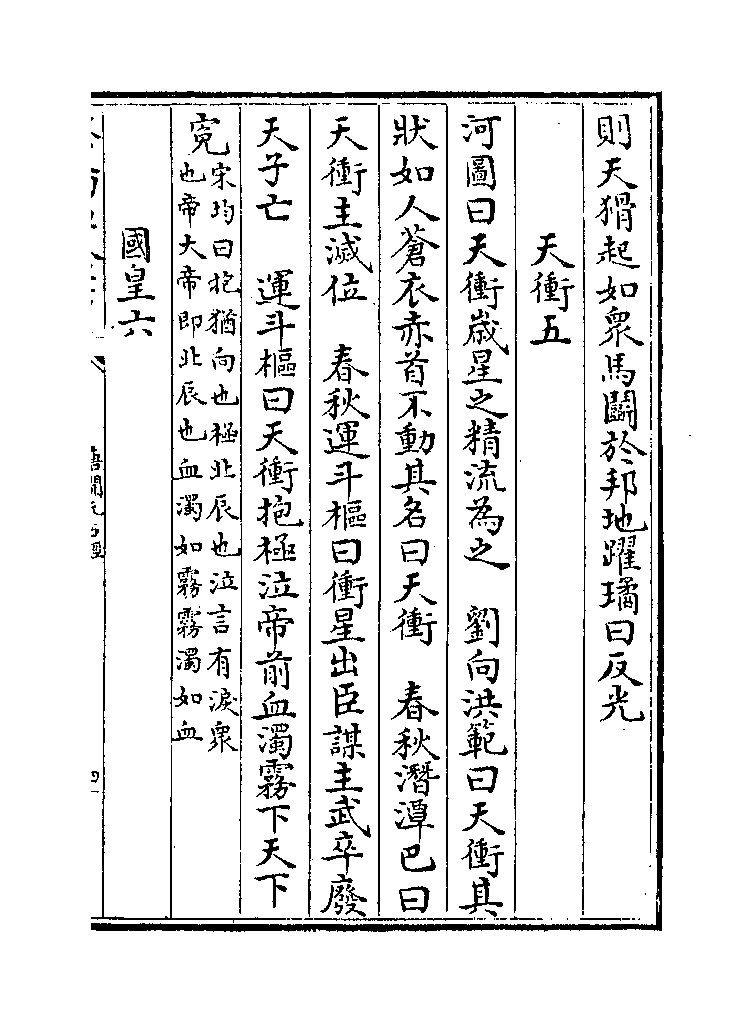 則天猾起如衆馬鬭於邦地躍璚曰反光
天衝五
河圖曰天衝歲星之精流為之　劉向洪範曰天衝其
狀如人蒼衣赤首不動其名曰天衝　春秋潛潭巴曰
天衝主滅位　春秋運斗樞曰衝星出臣謀主武卒廢
天子亡　運斗樞曰天衝抱極泣帝前血濁霧下天下
寃宋均曰抱猶向也極北辰也泣言有淚衆
也帝大帝即北辰也血濁如霧霧濁如血
國皇六
唐開元占經